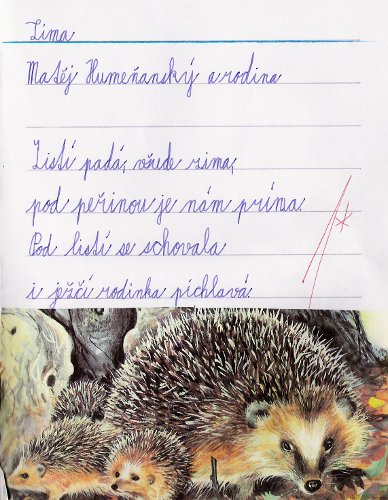 Zima
Matěj Humeňanský a rodina
Listí padá, všude zima,
pod peřinou je nám príma.
Pod listí se schovala
i ježčí rodinka pichlavá.